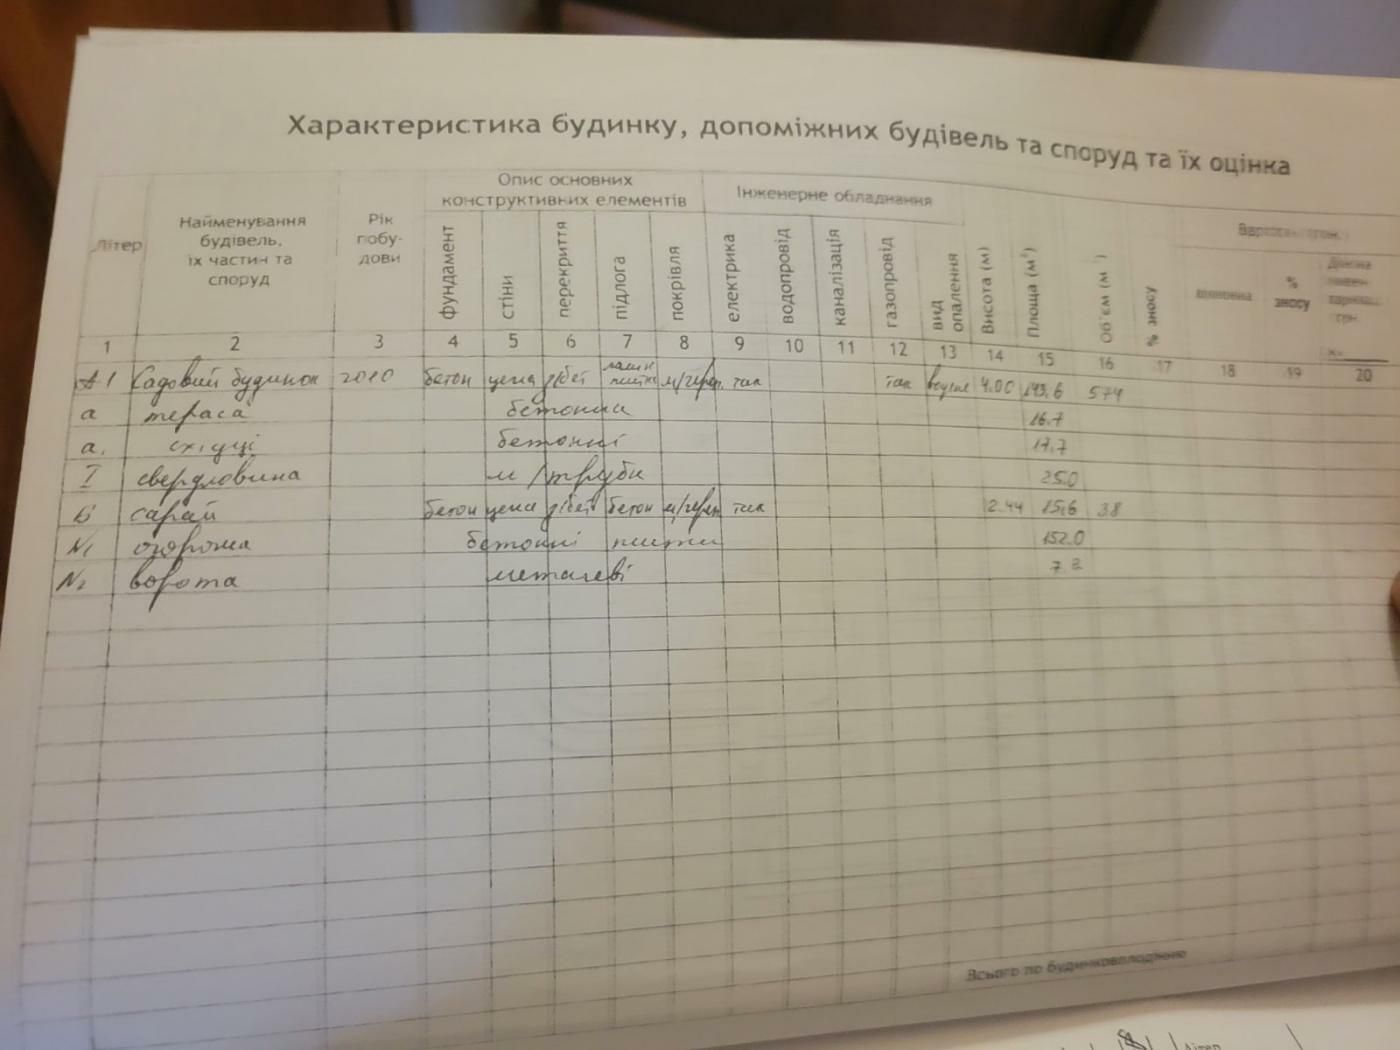 Характеристика будинку, допоміжних будівель та споруд та їх оцінка
Літер
Найменування будівель, їх частин та споруд
Рік побу-дови
Опис основних конструктивних елементів
фундамент
стіни
перекриття
підлога
покрівля
Інженерне обладнання
електрика
водопровід
каналізація
газопровід
вид опалення
Висота (м)
Площа (м²)
Об'єм (м³)
% зносу
% зносу
1 2 3 4 5 6 7 8 9 10 11 12 13 14 15 16 17 18 19 20
А1 Садовий будинок 2010 бетон цегла з/бет м/череп. так так 4.00 143.6 574
а тераса бетонна 16.7
а₁ східці бетонні 17.7
I свердловина м/труби 25.0
Б сарай бетон цегла з/бет бетон м/череп так 2.44 15.6 38
N1 огорожа бетонні плити 152.0
N2 ворота металеві
Всього по будинковолодінню
Літер